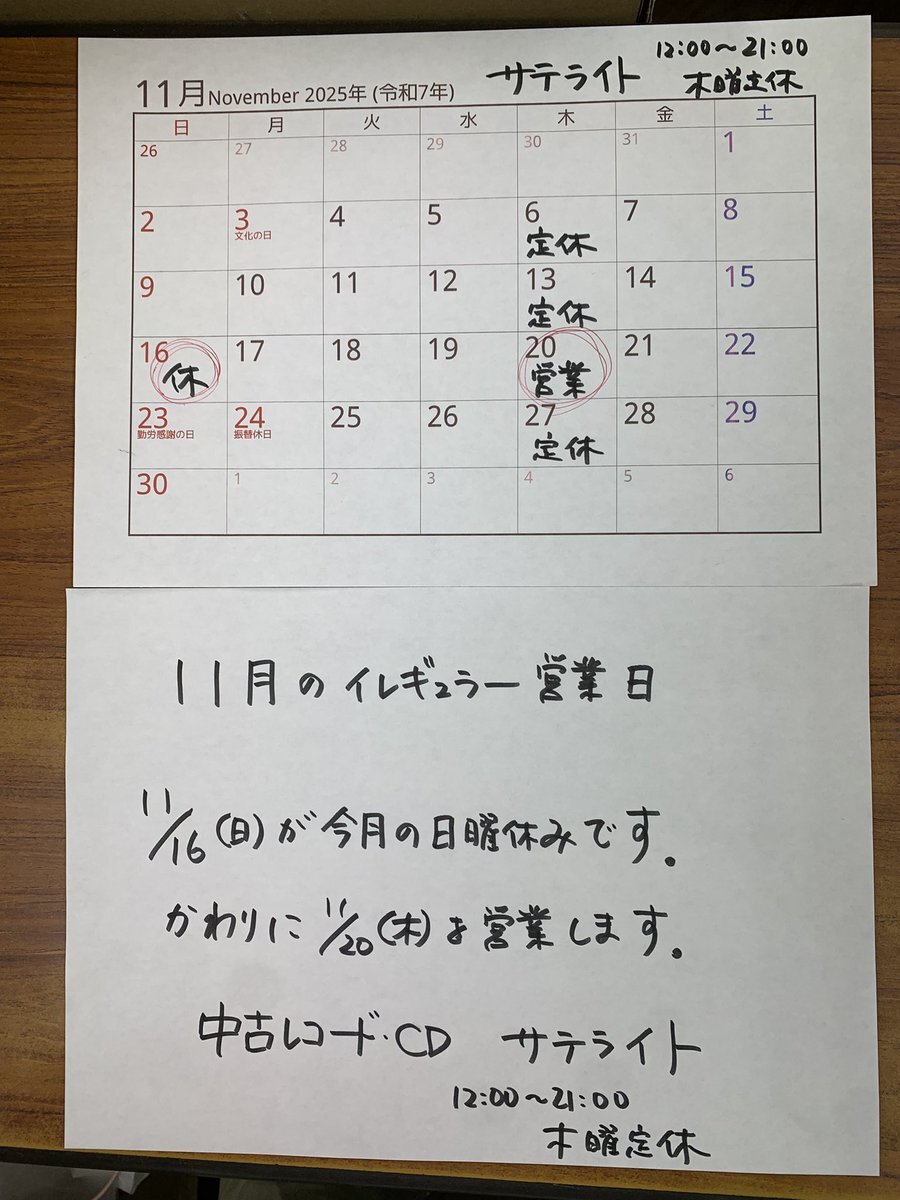 12:00〜21:00
サテライト 木曜定休
11月 November 2025年 (令和7年)
日 月 火 水 木 金 土
26 27 28 29 30 31 1
2 3 4 5 6 7 8
文化の日 定休
9 10 11 12 13 14 15
定休
16 17 18 19 20 21 22
休 営業
23 24 25 26 27 28 29
勤労感謝の日 振替休日 定休
30 1 2 3 4 5 6
11月のイレギュラー営業日
11/16(日)が今月の日曜休みです。
かわりに11/20(木)を営業します。
中古レコード・CD サテライト
12:00〜21:00
木曜定休